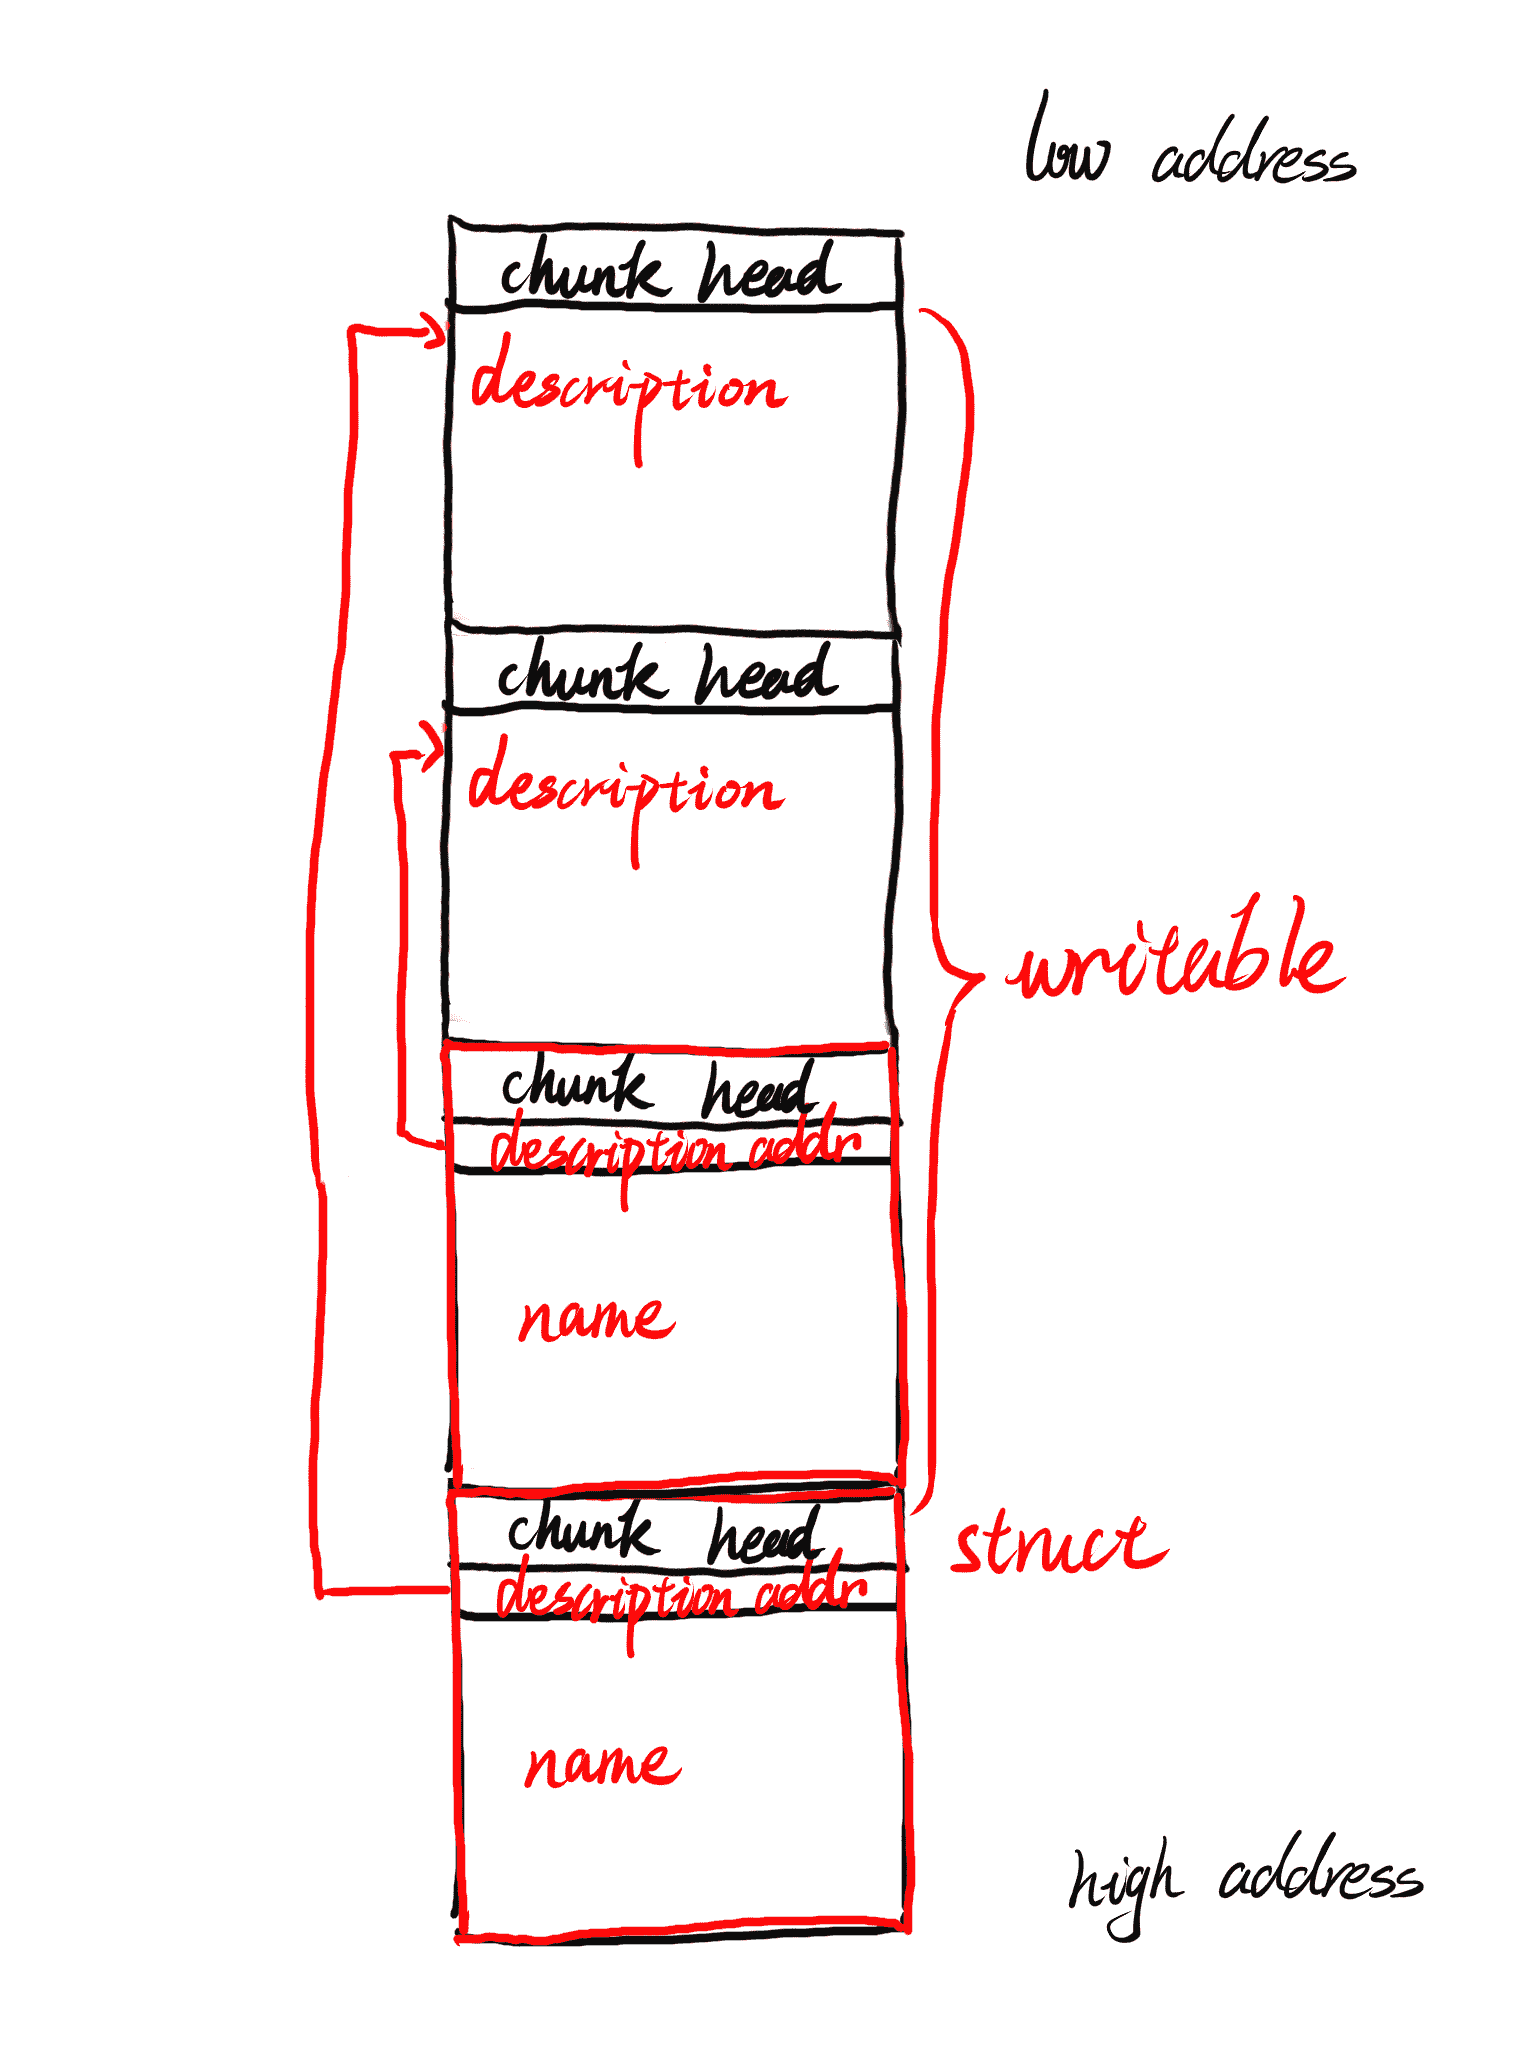 low address
chunk head
description
chunk head
description
writable
chunk head
description addr
name
chunk head
struct
description addr
name
high address